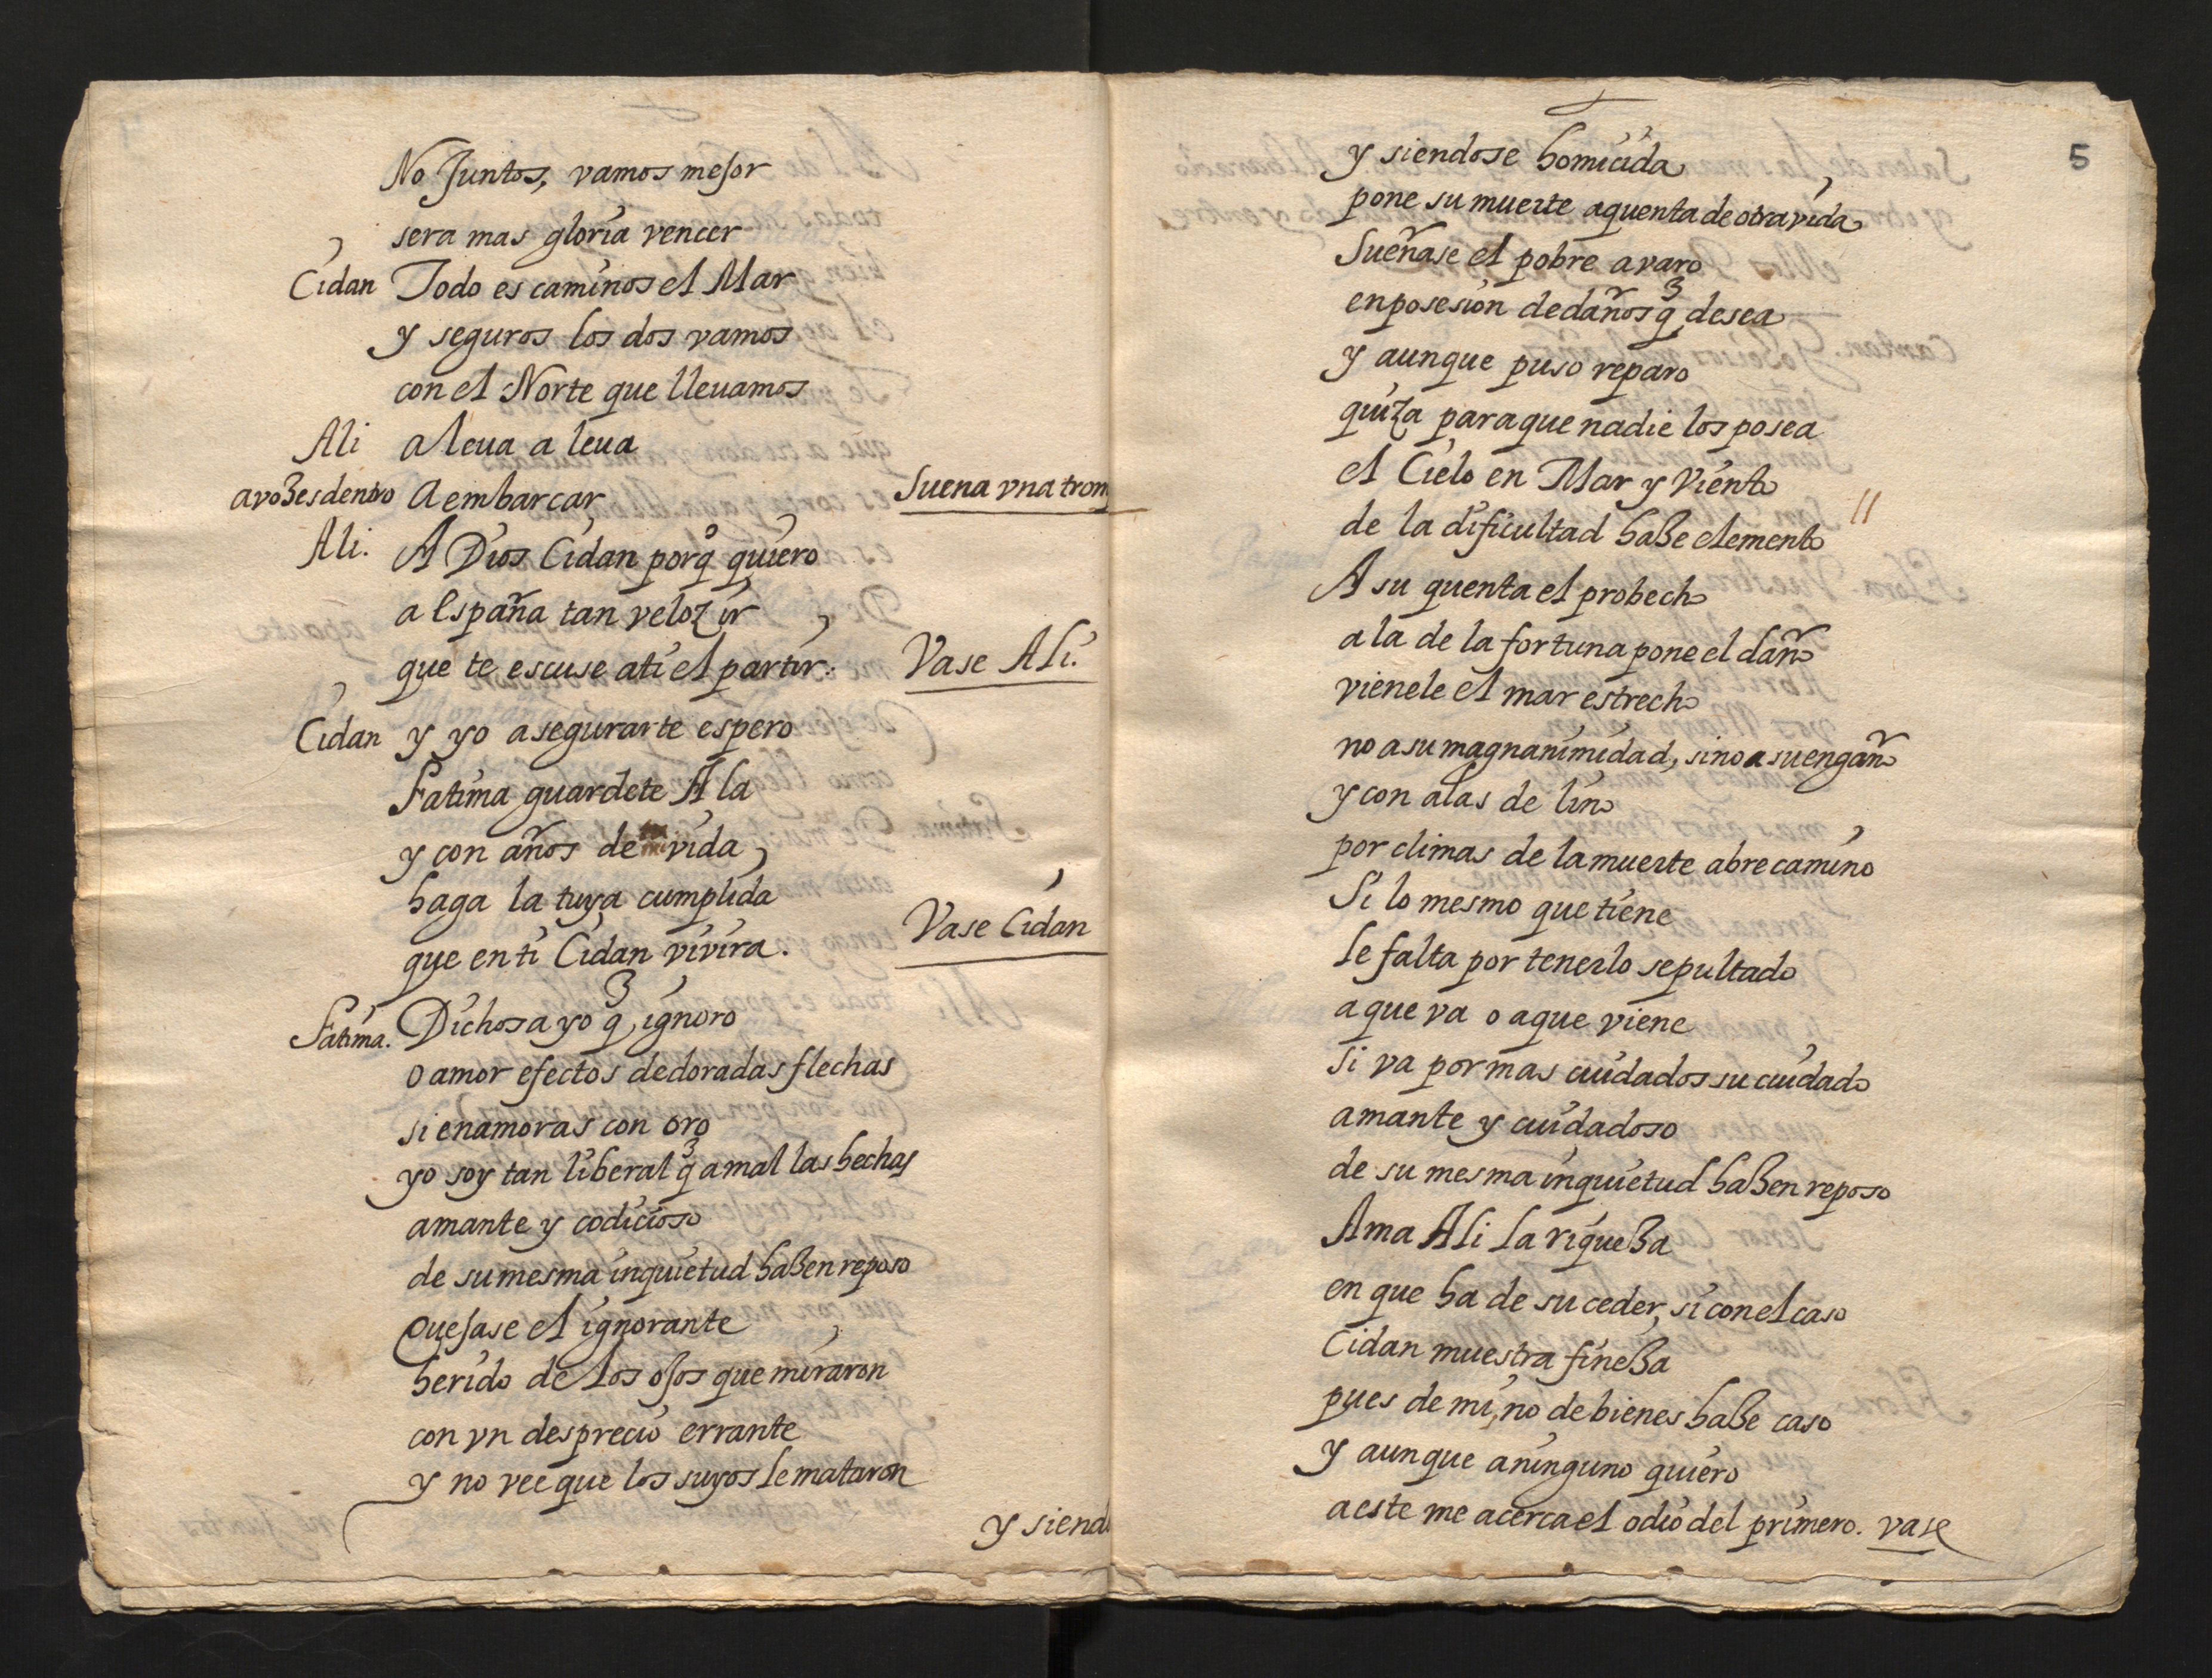 No Juntos, vamos mejor
sera mas gloria vencer
Cidan Todo es caminos el Mar
y seguros los dos vamos
con el Norte que lleuamos
Ali a leua a leua
a vozes dentro A embarcar Suena vna trom
Ali. A Dios Cidan porq̃ quiero
a España tan veloz ir
que te escuse ati el partir. Vase Ali.
Cidan y yo asegurarte espero
Fatima guardete Ala
y con años de vida
haga la tuya cumplida
que en ti Cidan vivira. Vase Cidan
Fatima. Dichosa yo q̃ ignoro
o amor efectos de doradas flechas
si enamoras con oro
yo soy tan liberal q̃ a mal las hechas
amante y codicioso
de su mesma inquietud hazen reposo
Quejase el ignorante
herido de los ojos que miraron
con vn desprecio errante
y no vee que los suyos le mataron
y siend
5
y siendose homicida
pone su muerte a quenta de otra vida
Sueñase el pobre avaro
en posesion de daños q̃ desea
y aunque puso reparo
quiza para que nadie los posea
el Cielo en Mar y Viento
de la dificultad haze elemento
A su quenta el probecho
a la de la fortuna pone el daño
vienele el mar estrecho
no a su magnanimidad, sino a su engaño
y con alas de lino
por climas de la muerte abre camino
Si lo mesmo que tiene
le falta por tenerlo sepultado
a que va o a que viene
si va por mas cuidados su cuidado
amante y cuidadoso
de su mesma inquietud hazen reposo
Ama Ali la riqueza
en que ha de suceder, si con el caso
Cidan muestra fineza
pues de mi, no de bienes haze caso
y aunque a ninguno quiero
a este me acerca el odio del primero. vase